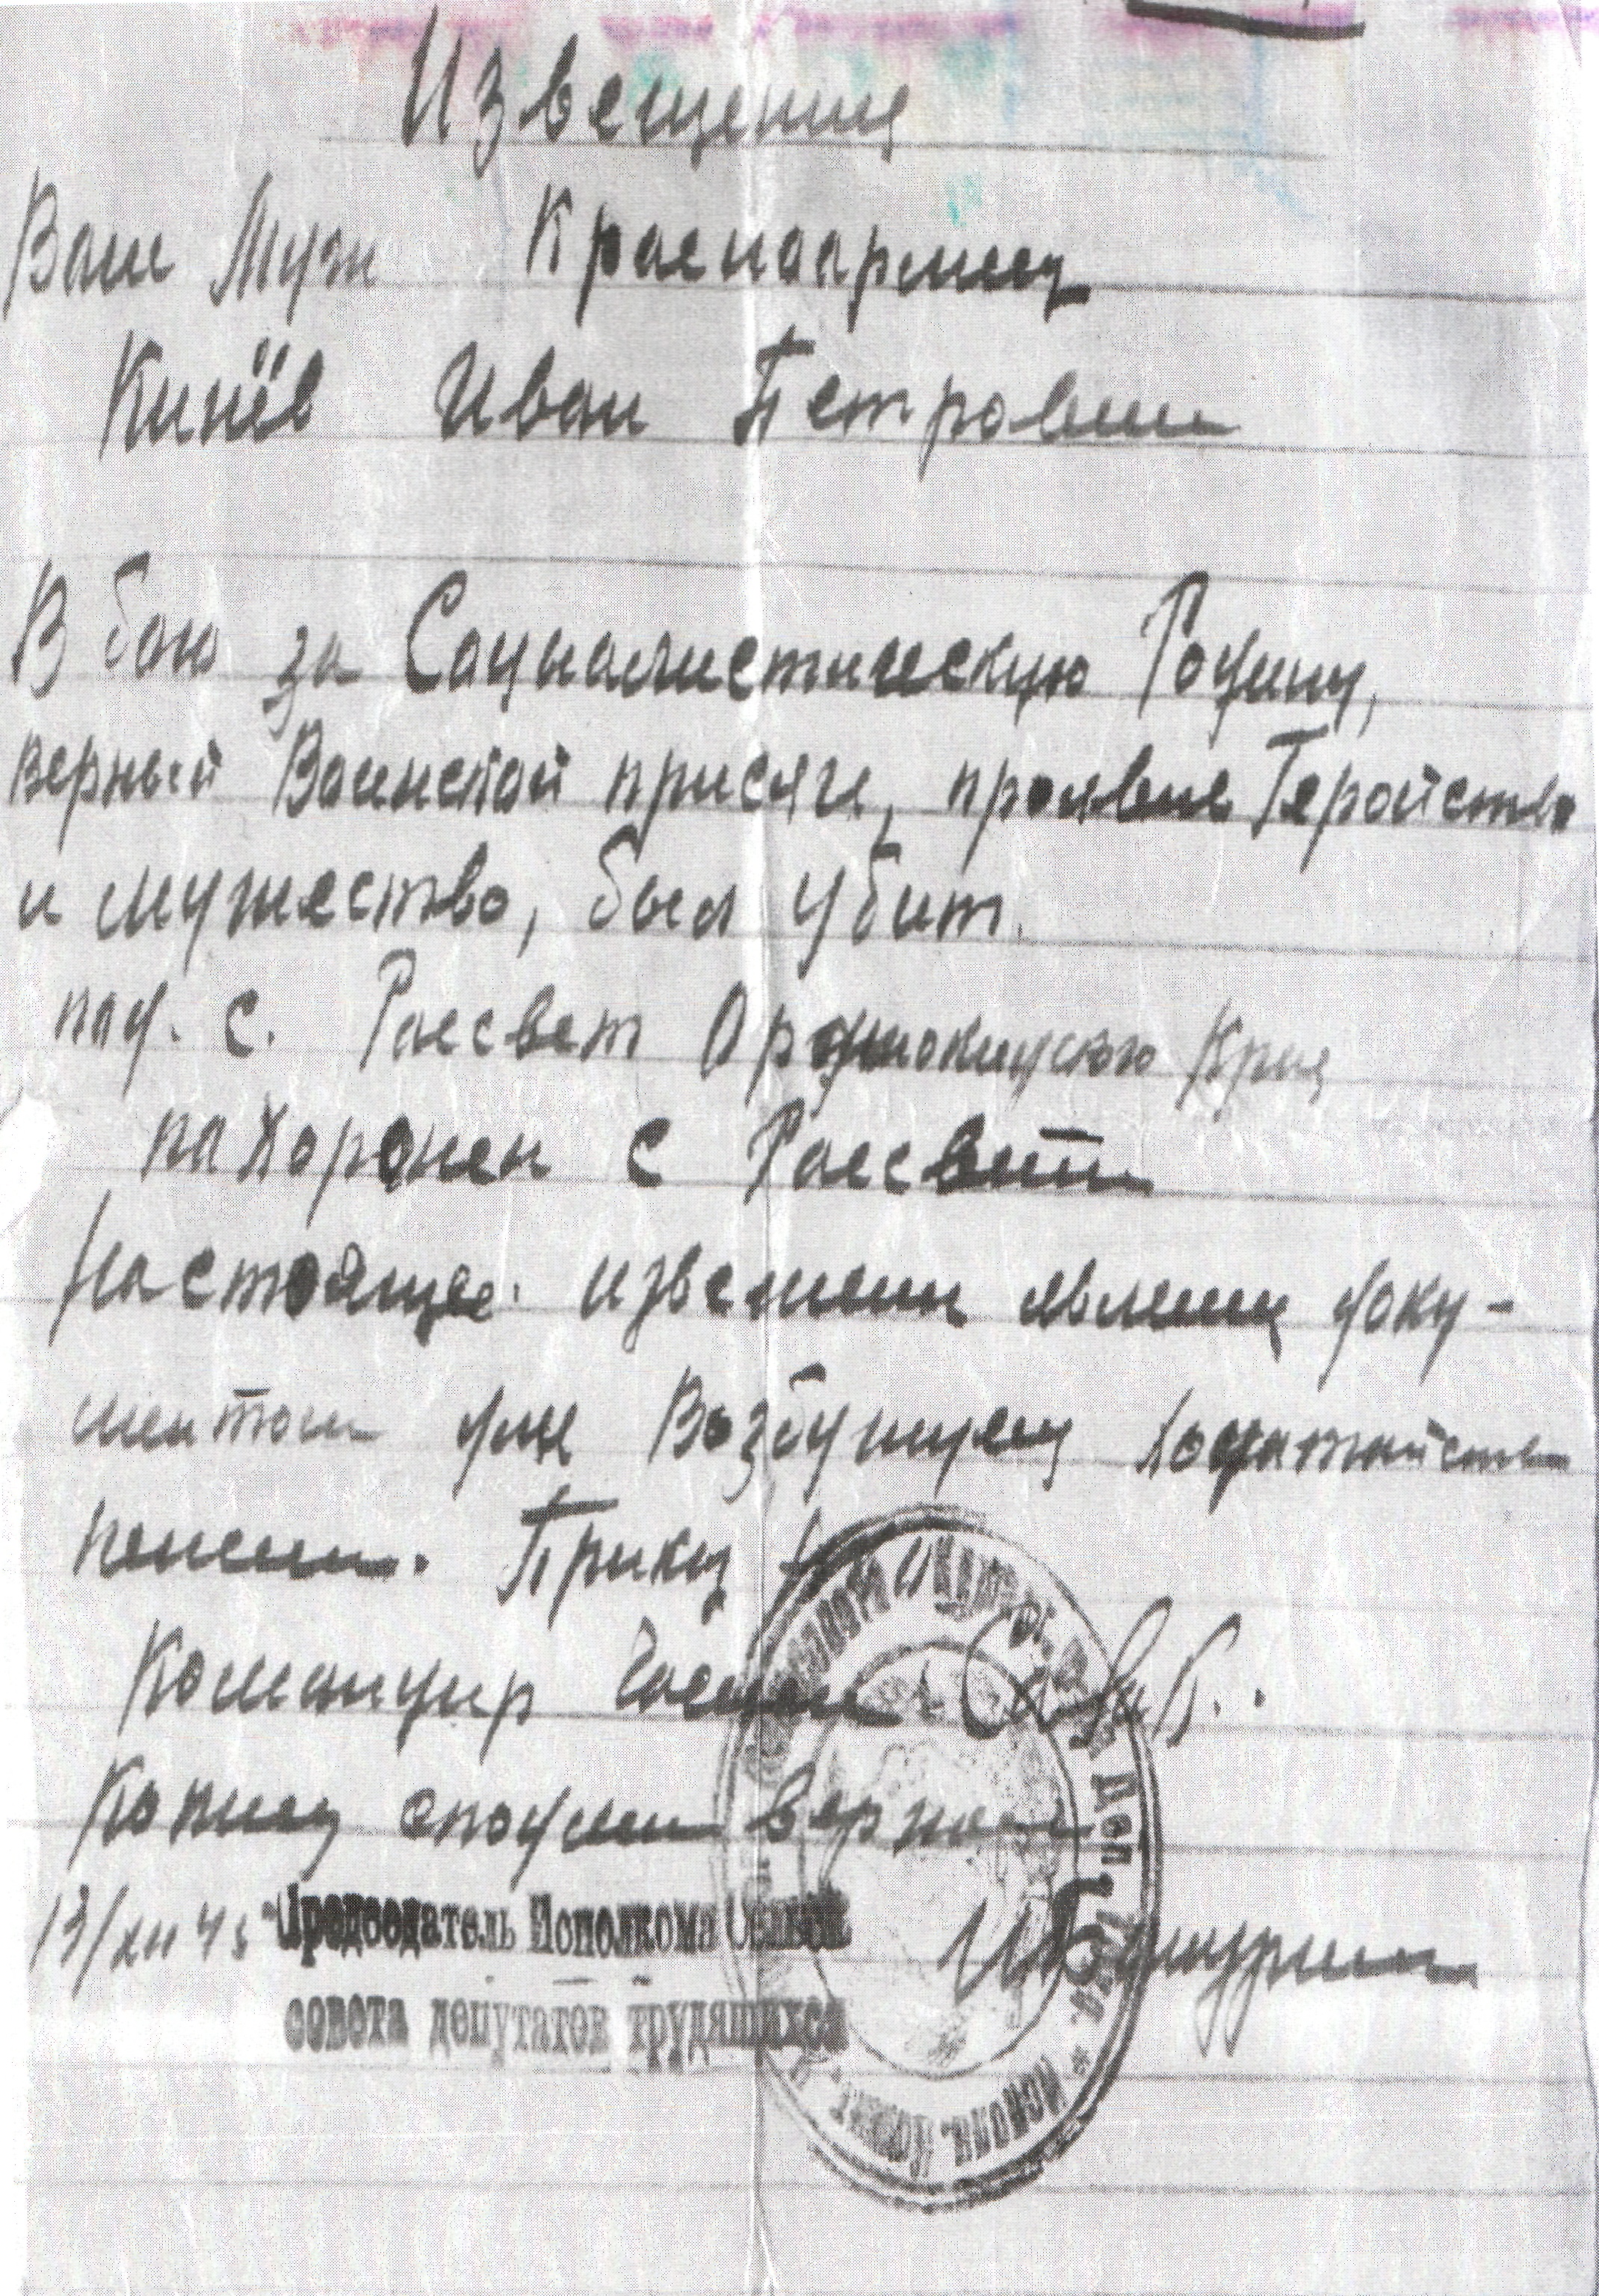 Извещения
Ваш Муж Красноармеец
Кинёв Иван Петрович
В бою за Социалистическую Родину,
верный Воинской присяге, проявив Геройство
и мужество, был убит.
под. с. Рассвет Орджоникидзского Края
похоронен с Рассвет
Настоящее извещение является доку-
ментом для Возбуждения ходатайства
пенсии. Приказ
Командир Части
Копия с подлинным верна
13/XII 43
Председатель Исполкома Сельск
совета депутатов трудящихся
Исполн. Комит. Деп.